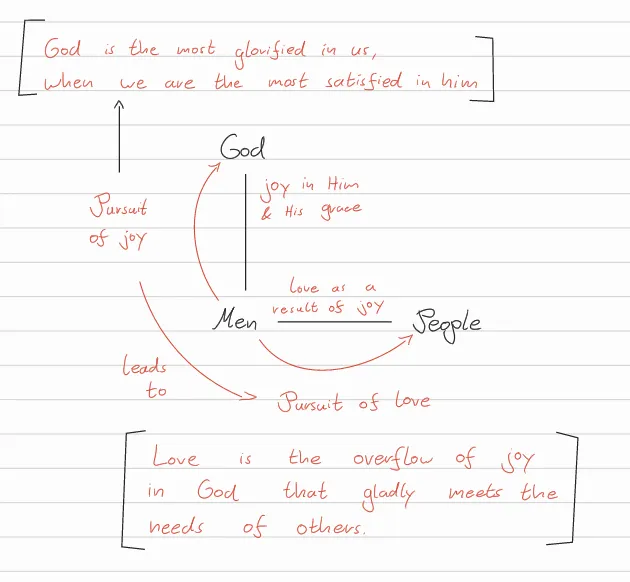 God is the most glorified in us,
when we are the most satisfied in him
God
joy in Him
& His grace
Pursuit
of joy
Love as a
result of joy
Men
People
leads
to
Pursuit of love
Love is the overflow of joy
in God that gladly meets the
needs of others.